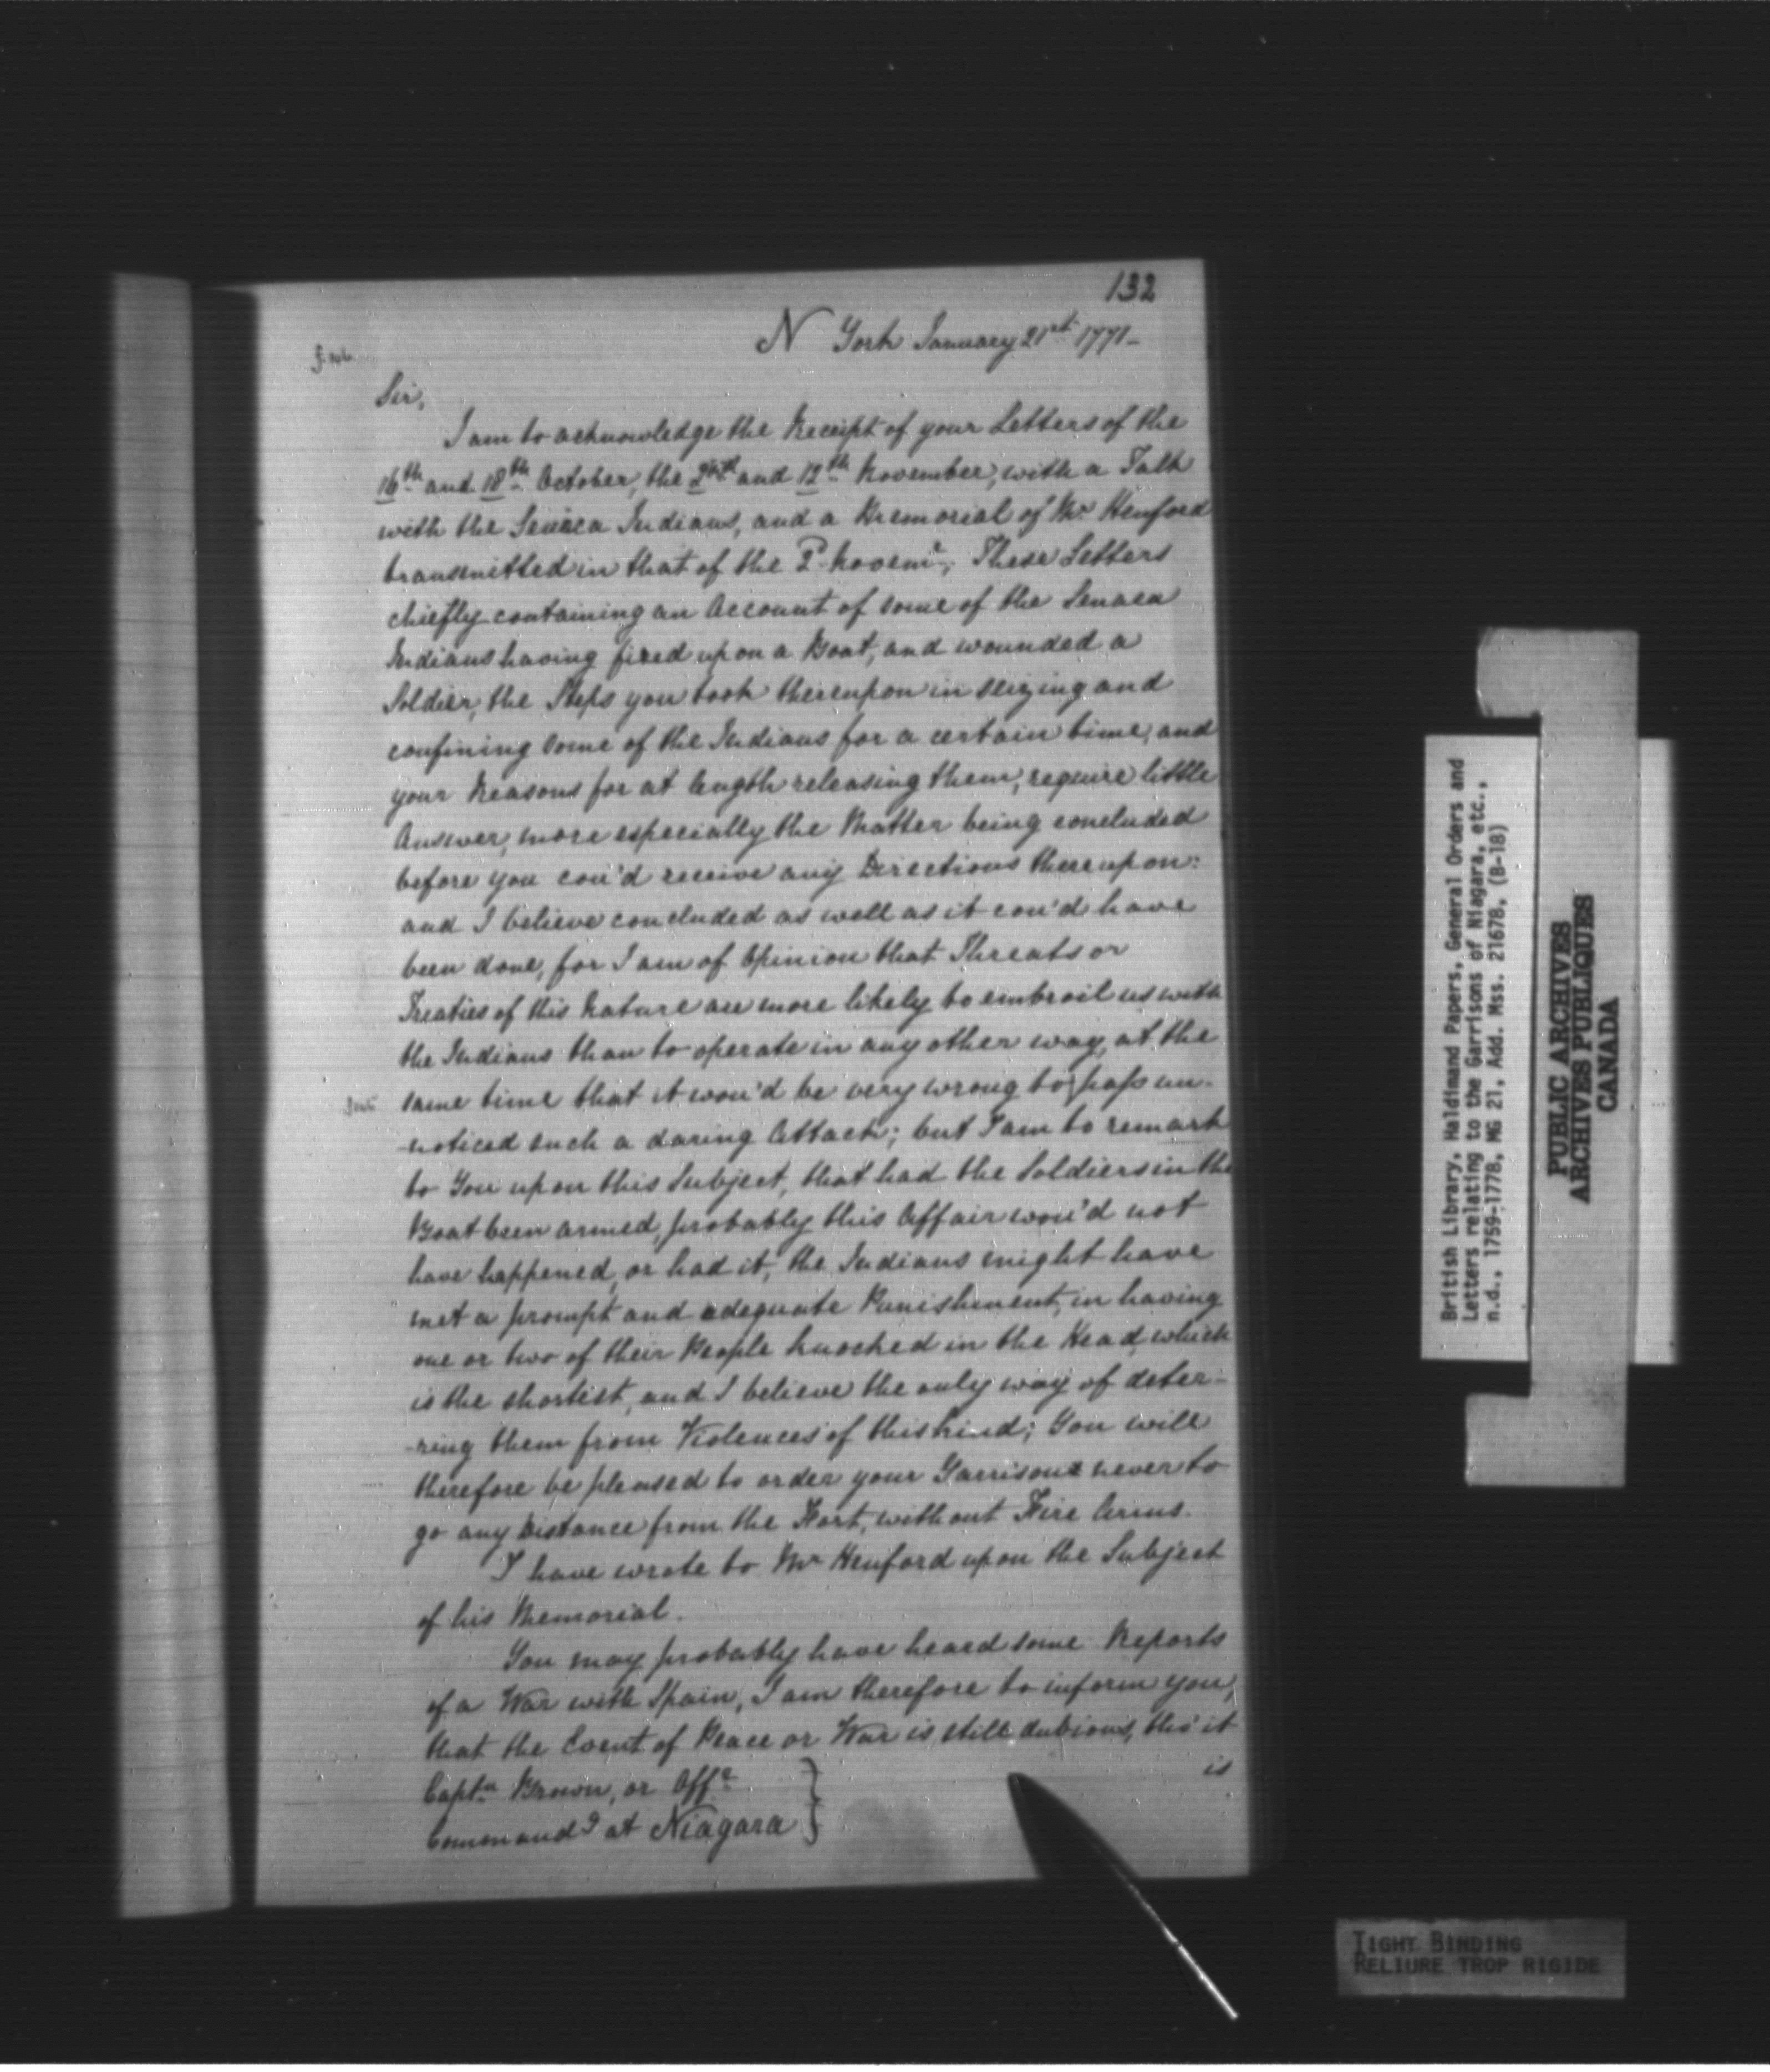 132
N York January 21st 1771-
Sir,
I am to acknowledge the Receipt of your Letters of the
16th and 18th October, the 2nd and 12th November, with a Talk
with the Seneca Indians, and a Memorial of Mr Henford
transmitted in that of the 2d Novemr, These Letters
chiefly containing an Account of some of the Seneca
Indians having fired upon a Boat, and wounded a
Soldier, the Steps you took thereupon in seizing and
confining some of the Indians for a certain time, and
your Reasons for at length releasing them, require little
Answer, more especially the Matter being concluded
before you cou'd receive any Directions thereupon:
and I believe concluded as well as it cou'd have
been done, for I am of Opinion that Threats or
Treaties of this Nature are more likely to embroil us with
the Indians than to operate in any other way, at the
same time that it wou'd be very wrong to pass un-
-noticed such a daring Attack; but I am to remark
to You upon this Subject, that had the Soldiers in the
Boat been armed, probably this Affair wou'd not
have happened, or had it, the Indians might have
met a prompt and adequate Punishment, in having
one or two of their People knocked in the Head, which
is the shortest, and I believe the only way of deter-
-ring them from Violences of this kind; You will
therefore be pleased to order your Garrisons never to
go any Distance from the Fort, without Fire Arms.
I have wrote to Mr Henford upon the Subject
of his Memorial.
You may probably have heard some Reports
of a War with Spain, I am therefore to inform you,
that the Event of Peace or War is still dubious, tho' it
is
Captn Brown, or Offr
Command'g at Niagara
British Library, Haldimand Papers, General Orders and
Letters relating to the Garrisons of Niagara, etc.,
n.d., 1759-1778, MG 21, Add. Mss. 21678, (B-18)
PUBLIC ARCHIVES
ARCHIVES PUBLIQUES
CANADA
TIGHT BINDING
RELIURE TROP RIGIDE